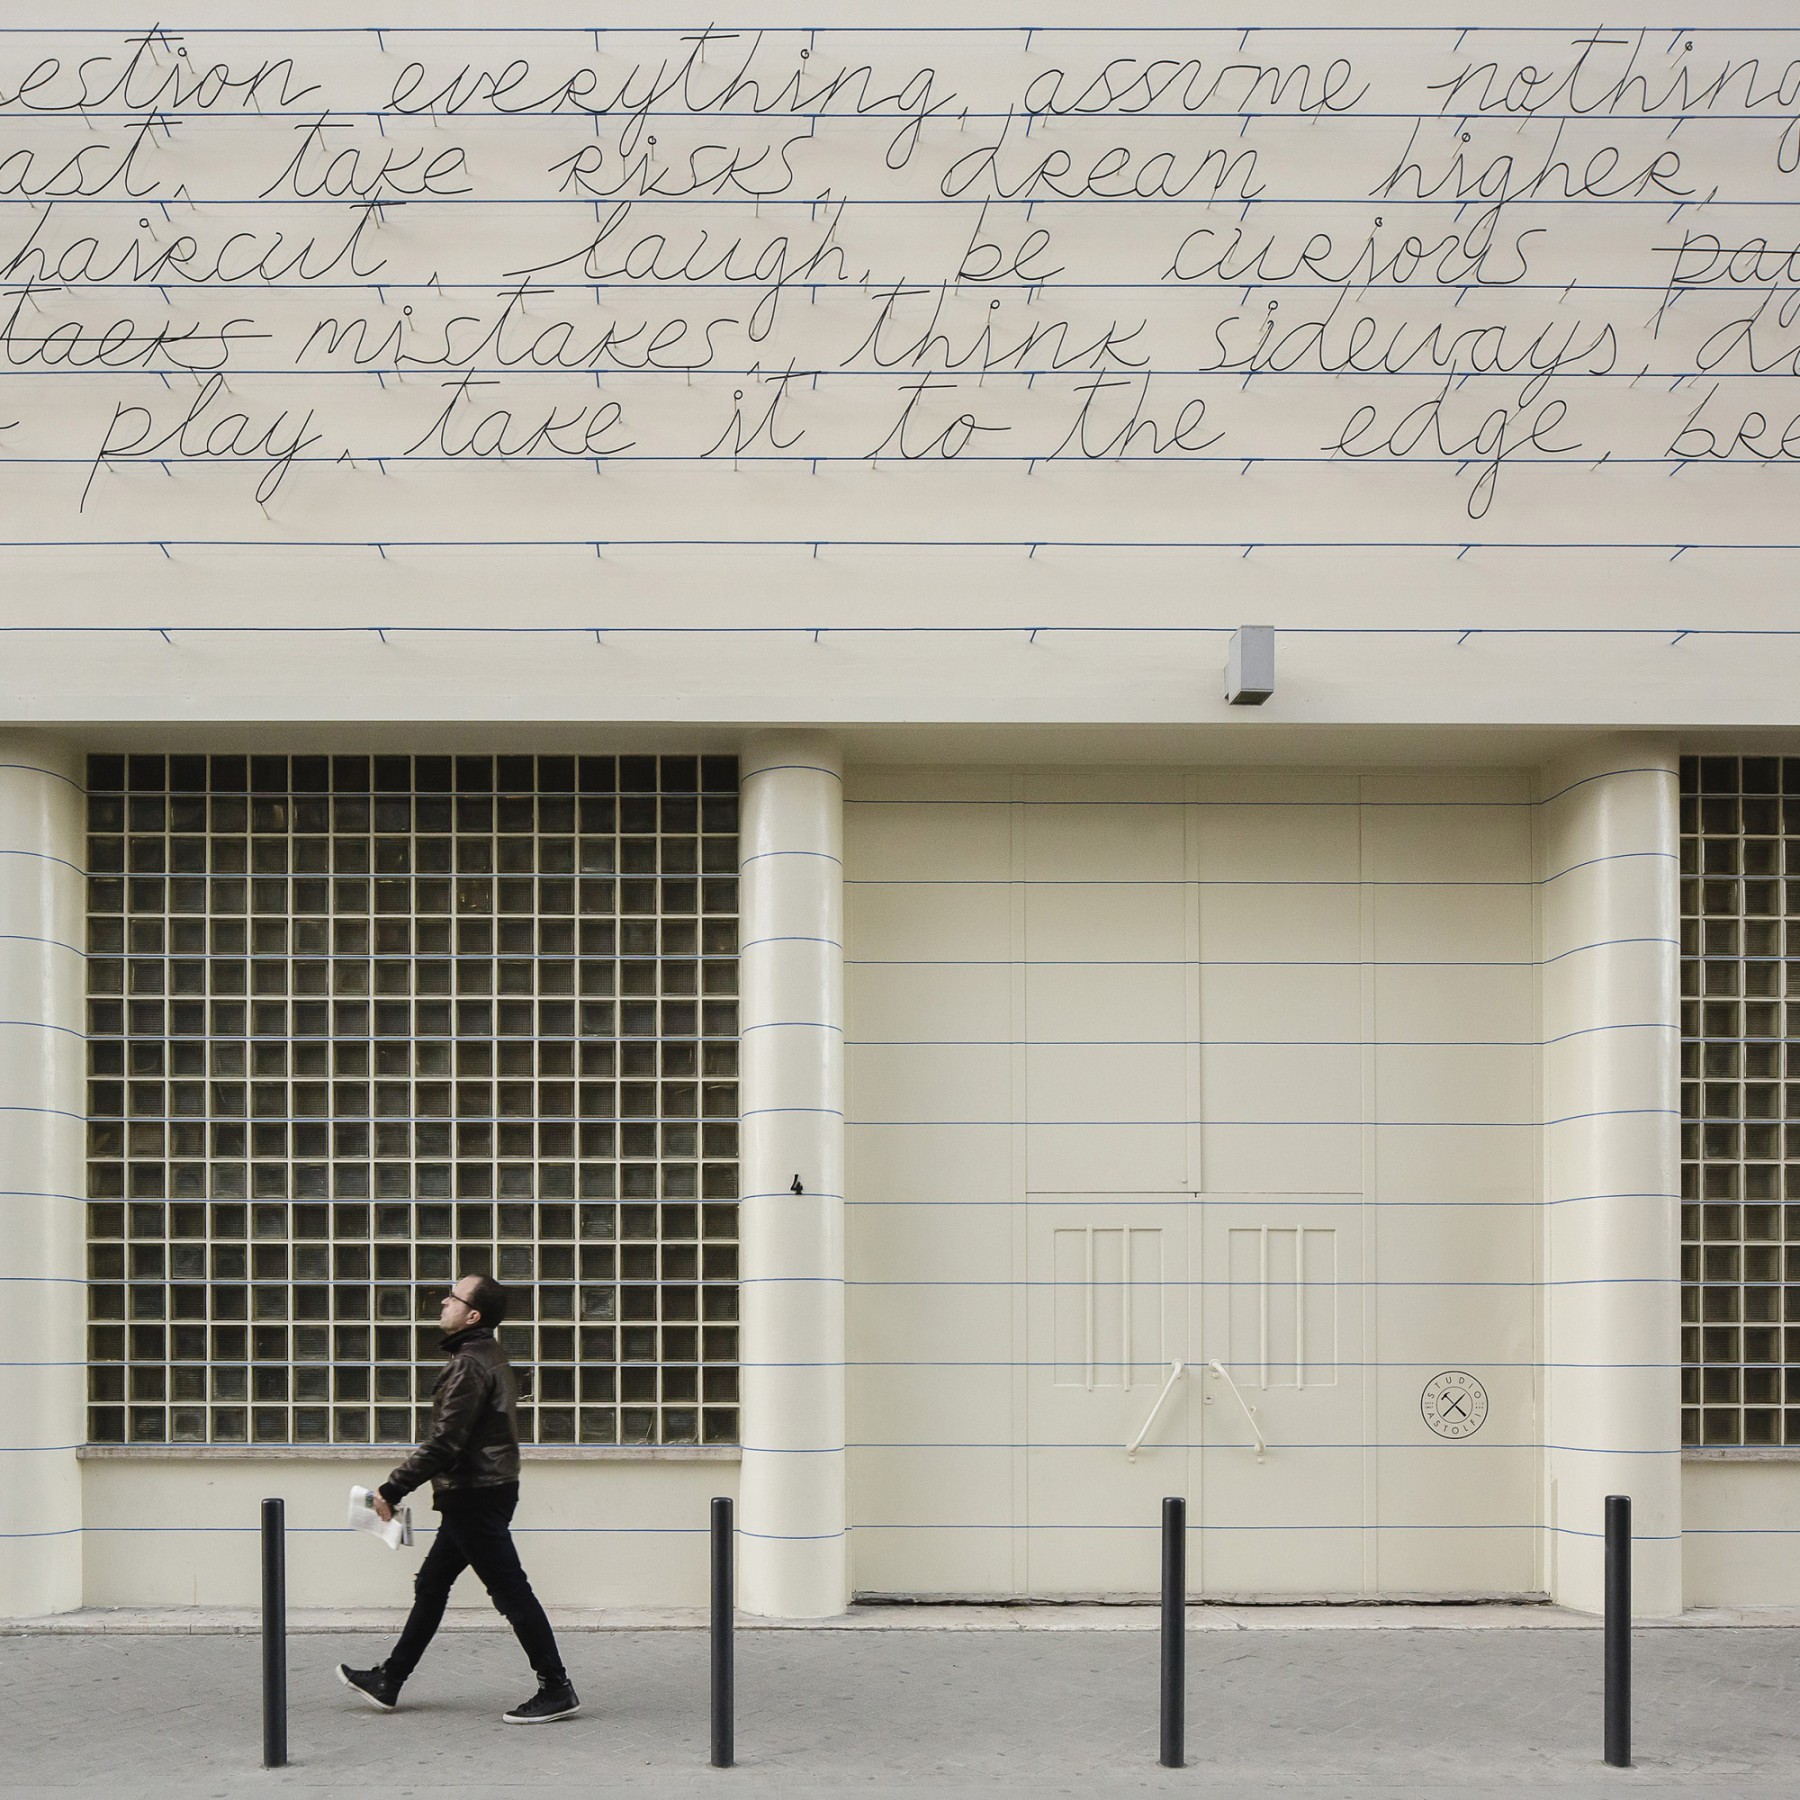 estion everything, assume nothing
ast, take risks, dream higher,
haircut, laugh, be curious, pay
taeks mistakes, think sideways, do
play, take it to the edge, bre
4
STUDIO
ASTOLFI